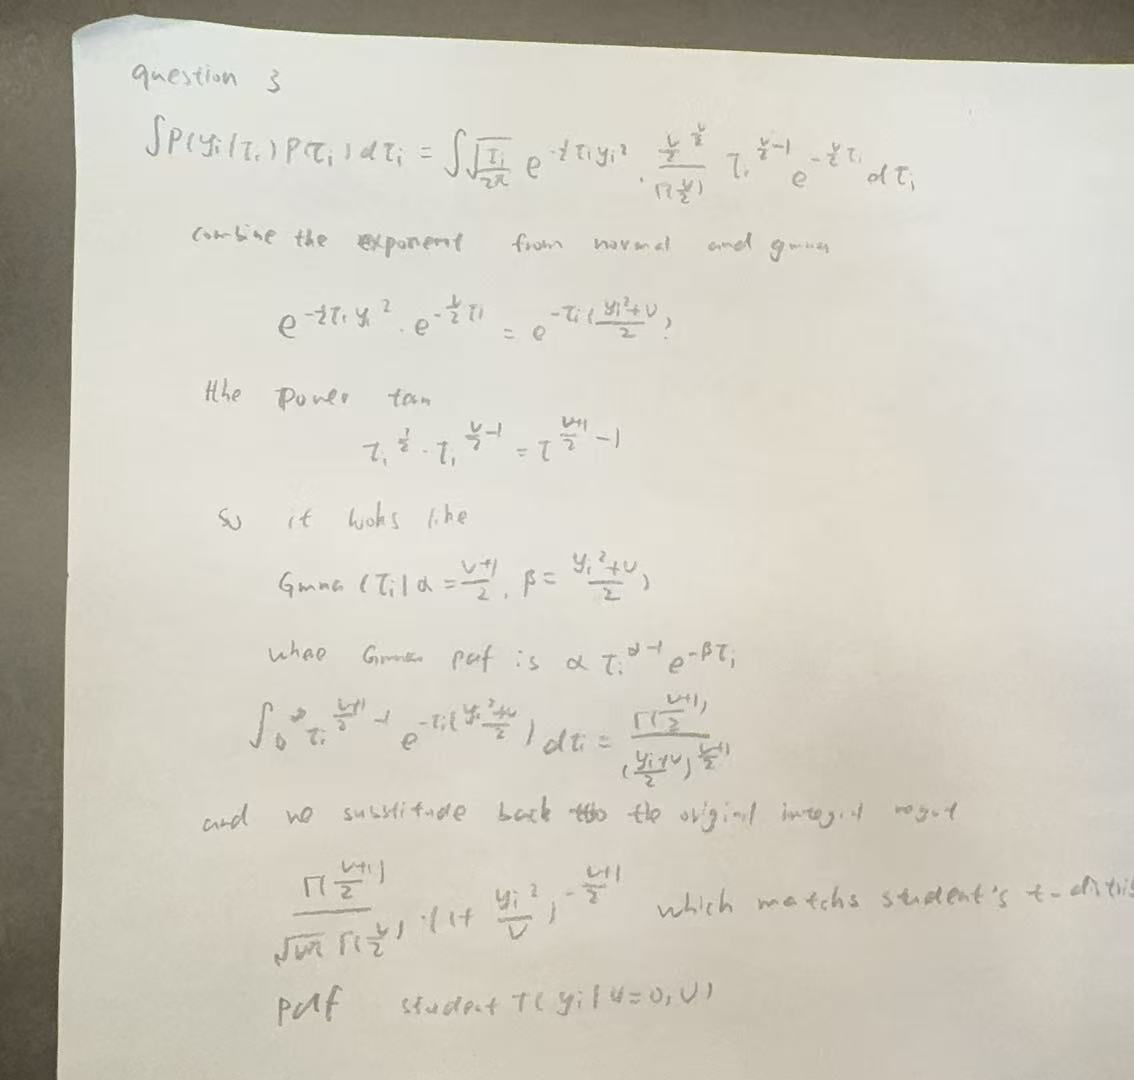 question 3
∫P(yi|τi)P(τi)dτi = ∫√(τi/2π) e^(-½τiyi²) · (ν/2)^(ν/2)/Γ(ν/2) τi^(ν/2-1) e^(-ν/2 τi) dτi
combine the exponent from normal and gmma
e^(-½τiyi²) · e^(-ν/2 τi) = e^(-τi(yi²+ν/2))
the power
τi^(1/2) · τi^(ν/2-1) = τ^((ν+1)/2-1)
so it looks like
Gmma (τi|α = (ν+1)/2, β = (yi²+ν)/2)
pdf is α τi^(α-1) e^(-βτi)
∫0^∞ τi^((ν+1)/2-1) e^(-τi(yi²+ν)/2) dτi = Γ((ν+1)/2) / ((yi+ν)/2)^((ν+1)/2)
and we substitude back to the original integral
Γ((ν+1)/2) / (√νπ Γ(ν/2)) · (1+ yi²/ν)^(-(ν+1)/2) which matchs student's t-distri
pdf student T(yi|μ=0,ν)